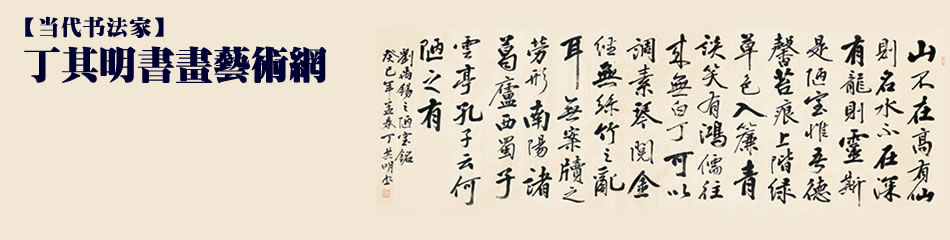 【当代书法家】
丁其明書畫藝術網
山不在高有仙
則名水不在深
有龍則靈斯
是陋室惟吾德
馨苔痕上階緑
草色入簾青
談笑有鴻儒往
来無白丁可以
調素琴閲金
經無絲竹之亂
耳無案牘之
劳形南陽諸
葛廬西蜀子
雲亭孔子云何
陋之有
劉禹錫之陋室銘
癸巳年孟春丁其明书